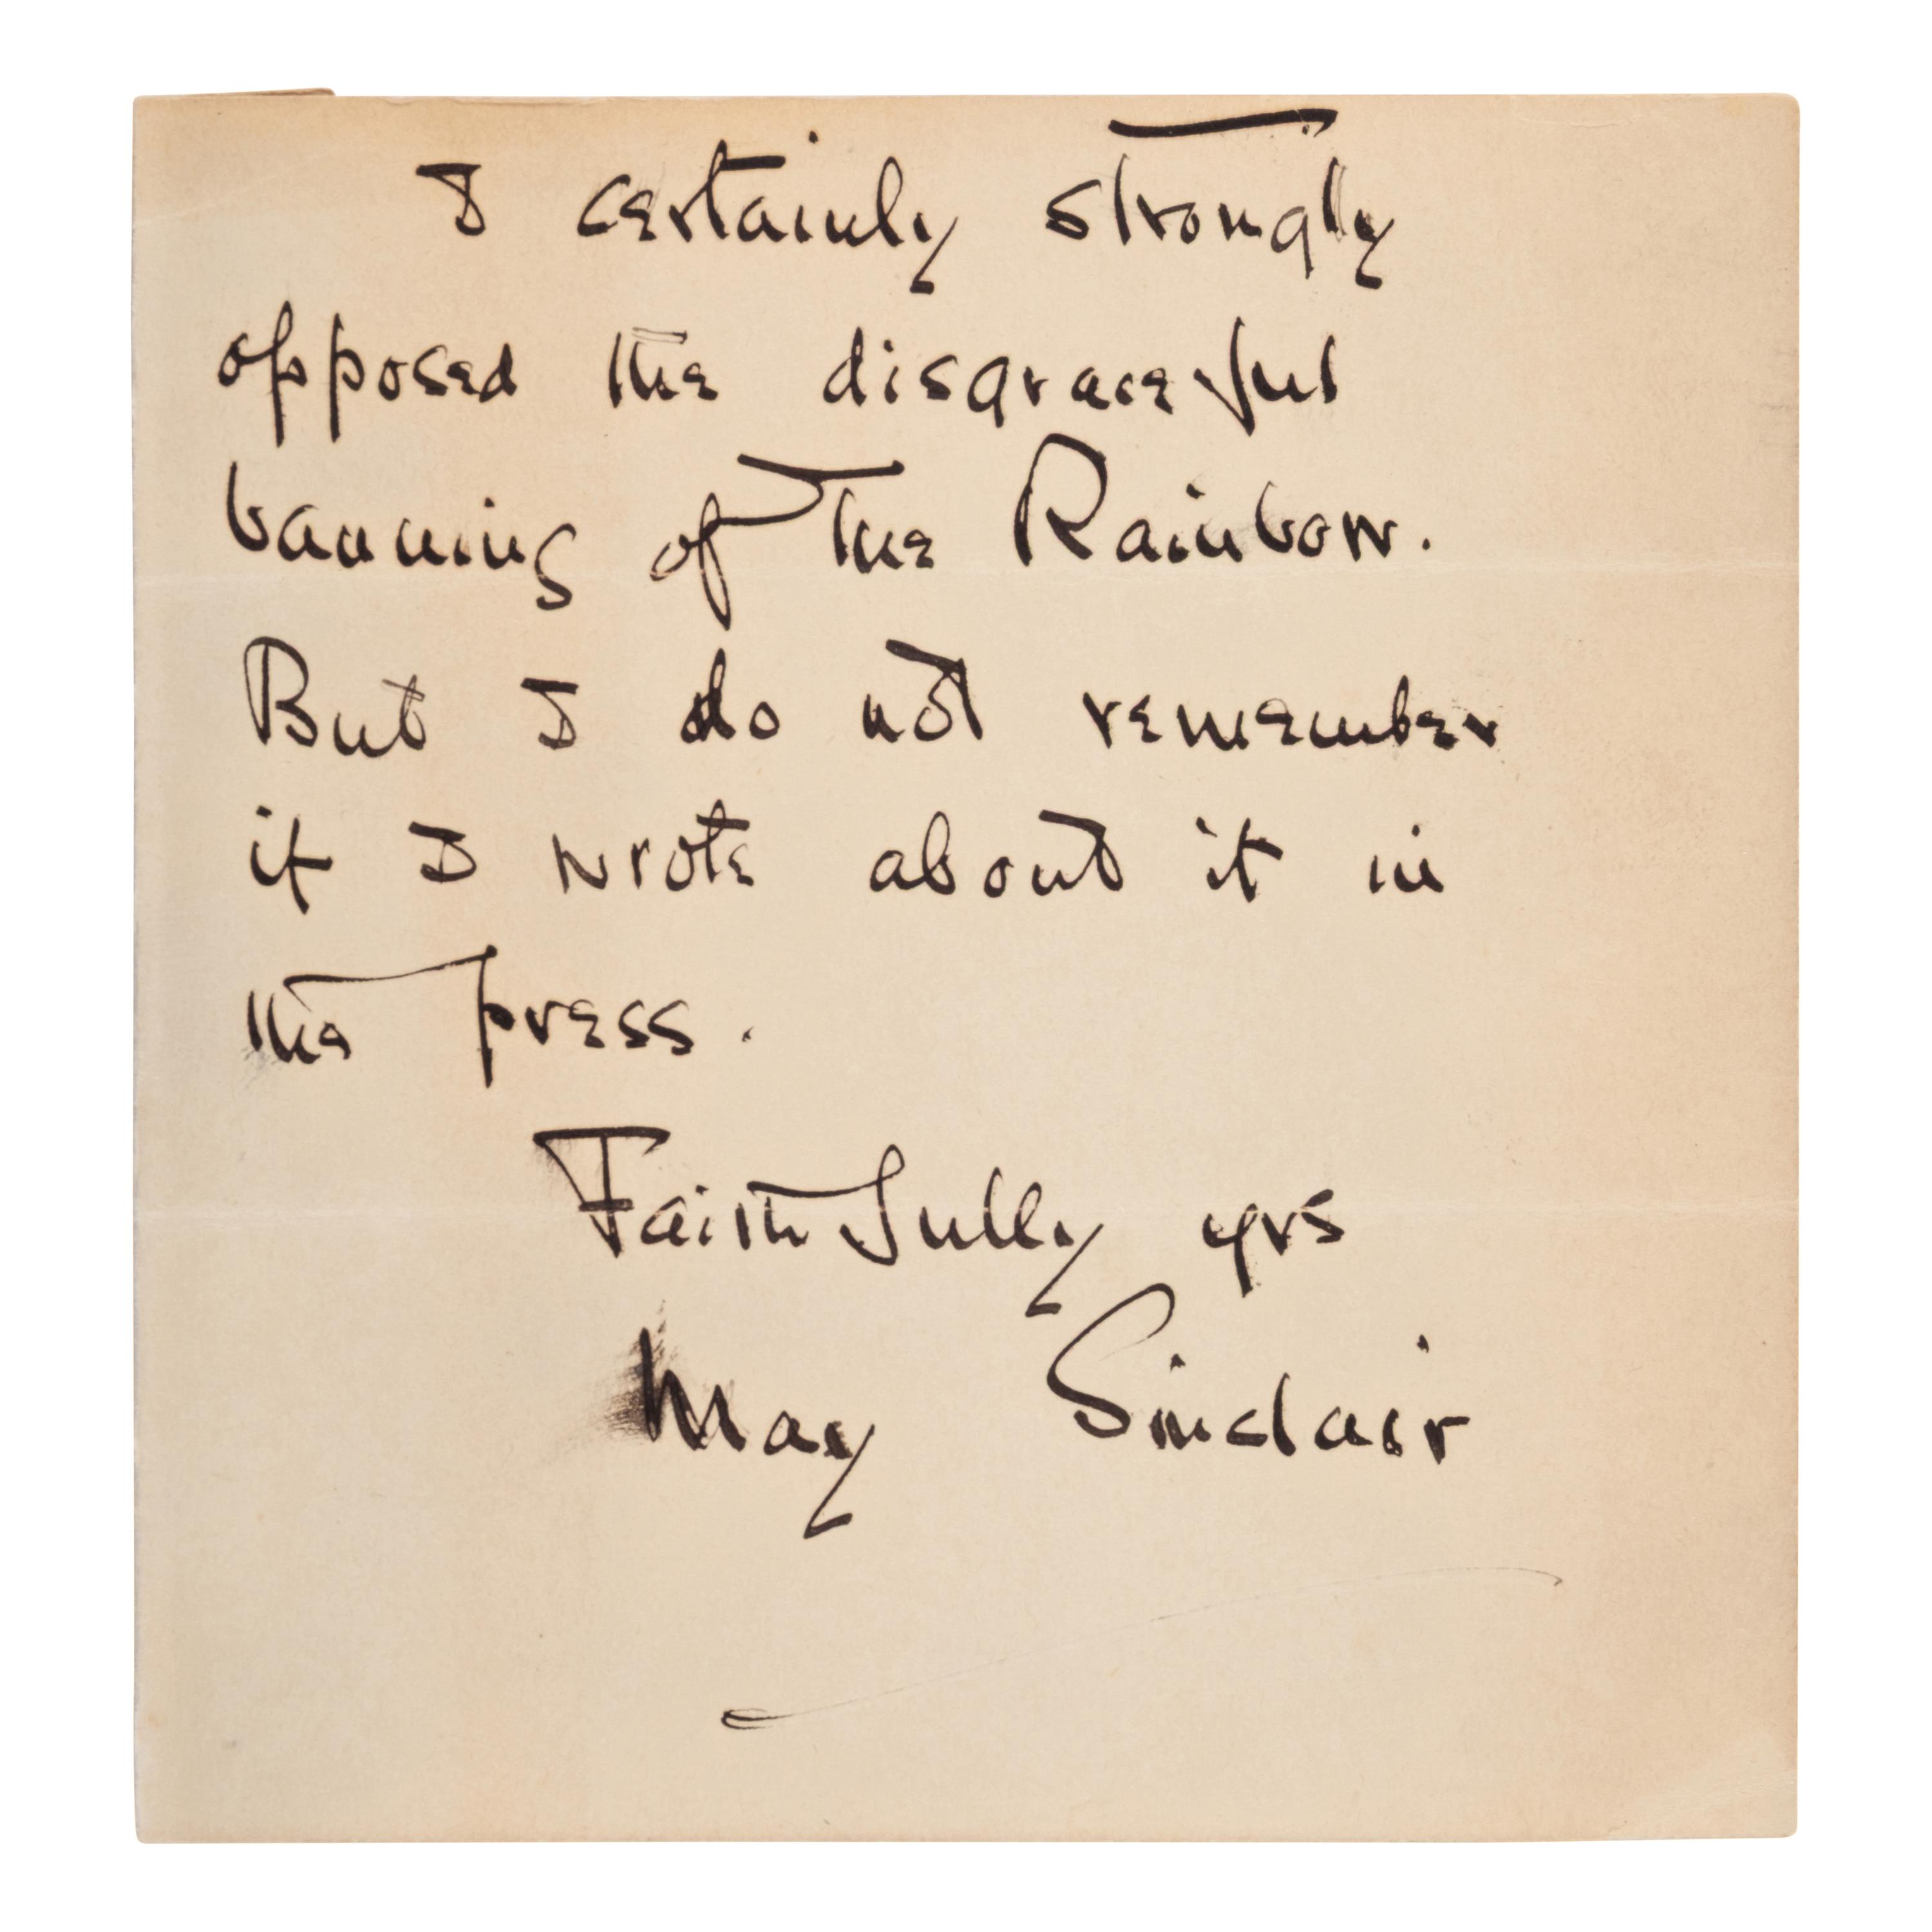 I certainly strongly
opposed the disgraceful
banning of The Rainbow.
But I do not remember
if I wrote about it in
the press.
Faithfully yrs
May Sinclair